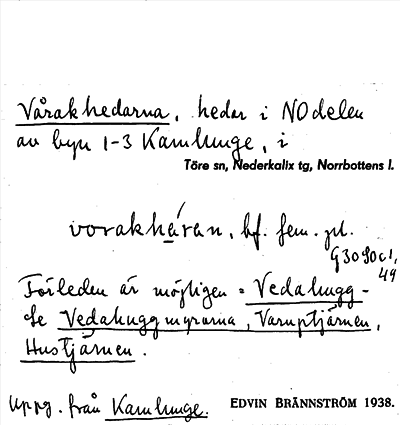 Vårakhedarna, hedar i NOdelen
av byn 1-3 Kamlunge, i
Töre sn, Nederkalix tg, Norrbottens l.
vorakhéran, bf. fem. pl.
G3090c1,
49
Förleden är möjligen =
Se Vedahuggmyrarna, Varuptjärnen,
Hustjärnen.
Uppg. från Kamlunge. EDVIN BRÄNNSTRÖM 1938.